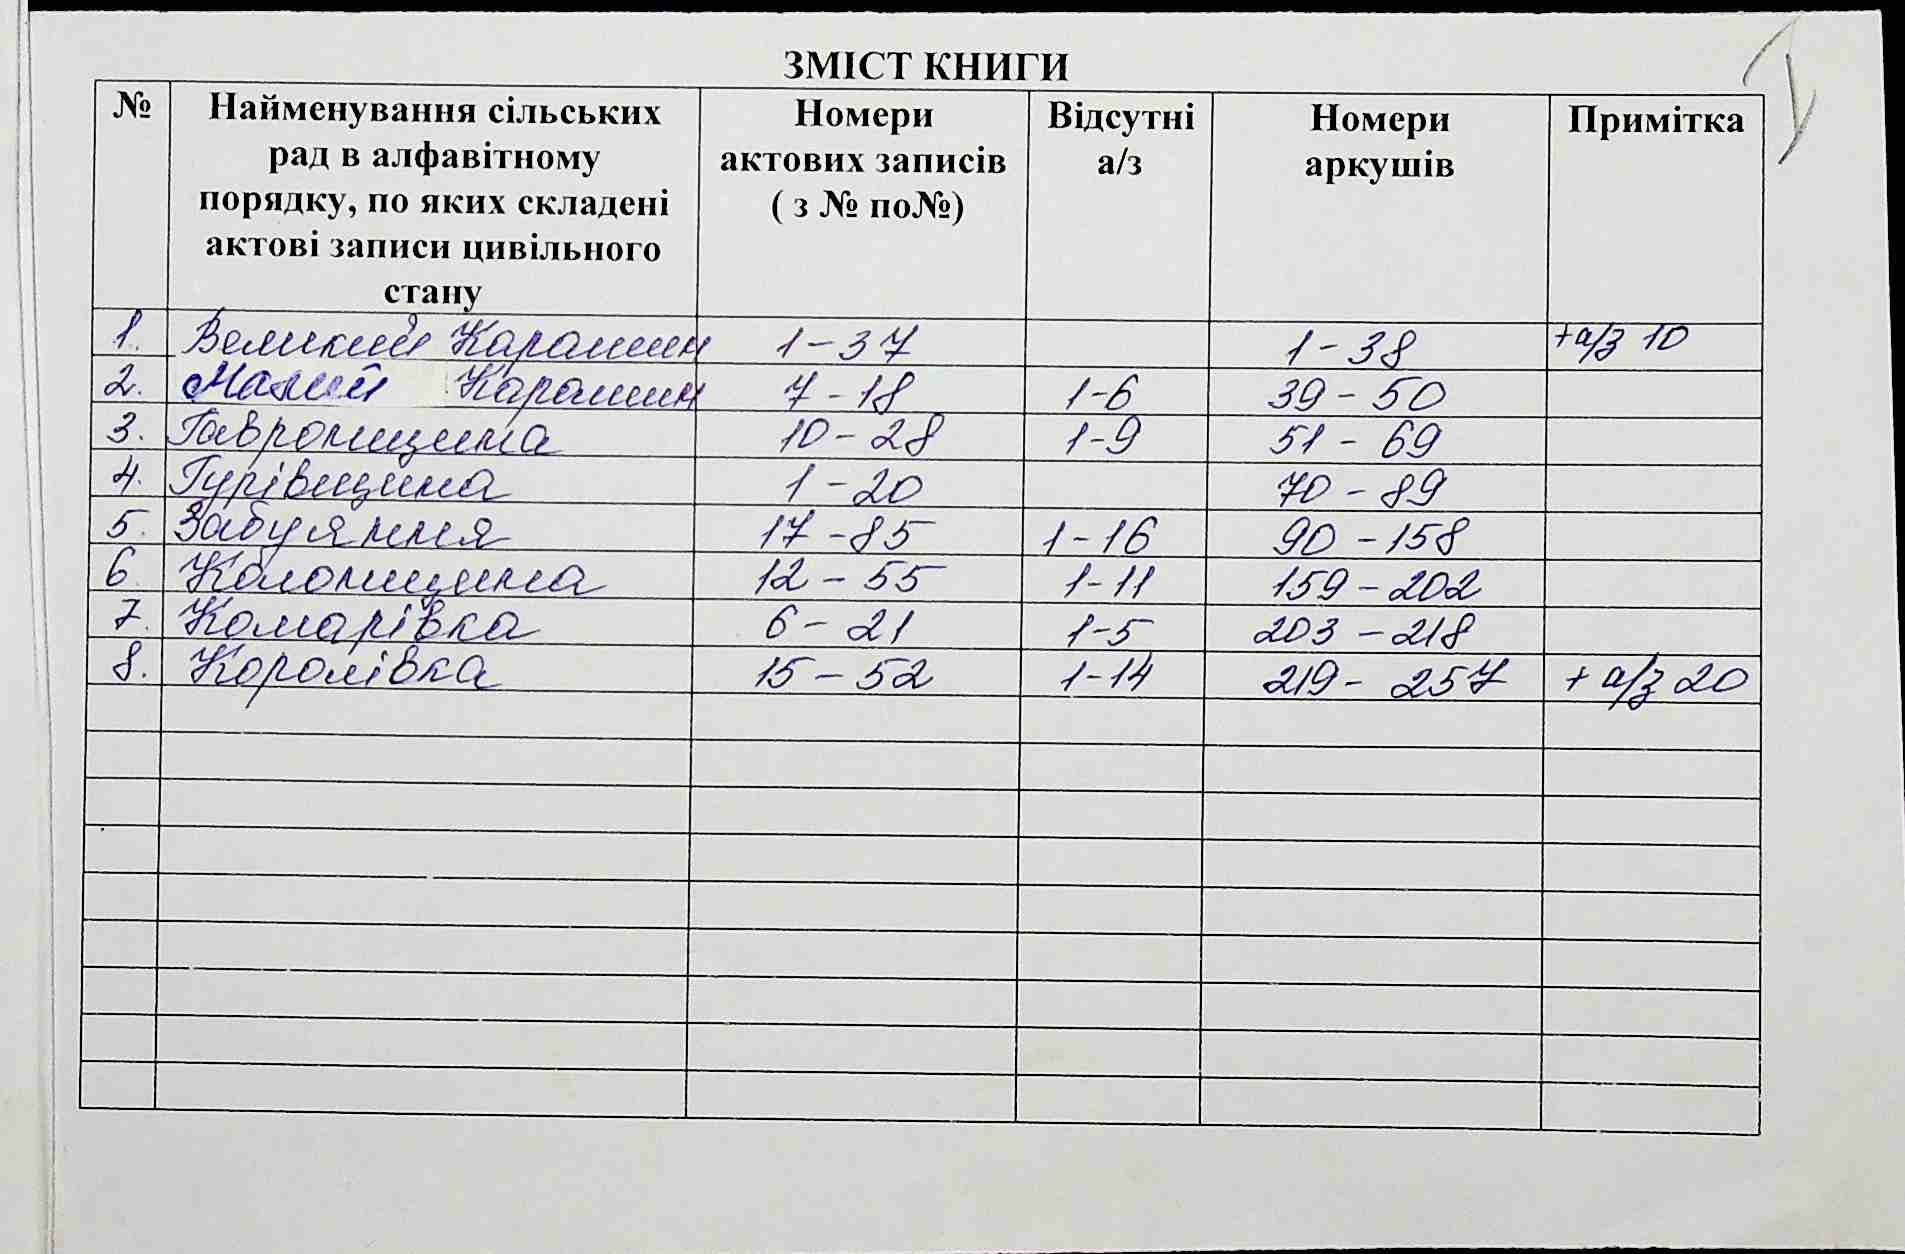 ЗМІСТ КНИГИ
№ Найменування сільських рад в алфавітному порядку, по яких складені актові записи цивільного стану Номери актових записів ( з № по№) Відсутні а/з Номери аркушів Примітка
1. Великий Карашин 1-37 1-38 +а/з 10
2. Малий Карашин 7-18 1-6 39-50
3. Гавронщина 10-28 1-9 51-69
4. Гурівщина 1-20 70-89
5. Забуяння 17-85 1-16 90-158
6. Колонщина 12-55 1-11 159-202
7. Комарівка 6-21 1-5 203-218
8. Королівка 15-52 1-14 219-257 + а/з 20